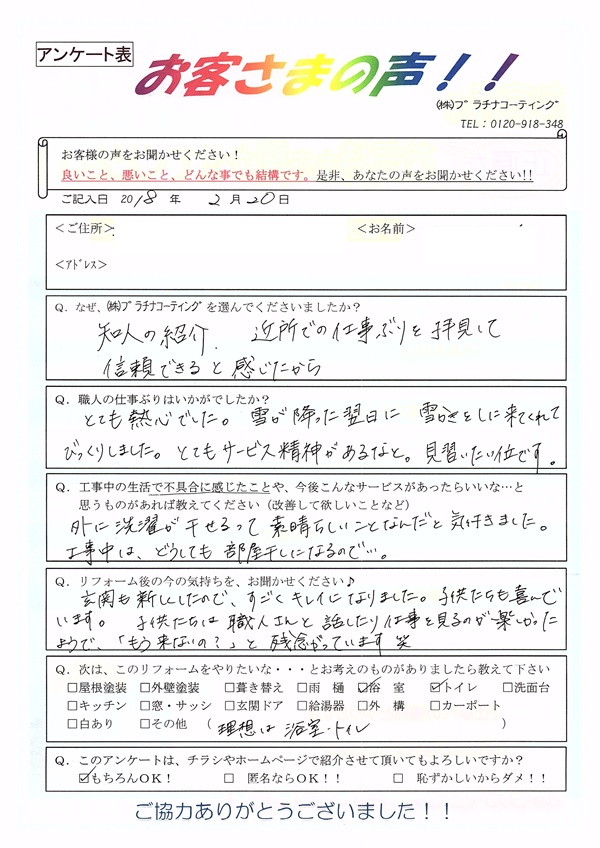 アンケート表
お客さまの声！！
㈱プラチナコーティング
TEL：0120-918-348
お客様の声をお聞かせください！
良いこと、悪いこと、どんな事でも結構です。是非、あなたの声をお聞かせください!!
ご記入日 2018 年 2月20日
＜ご住所＞ ＜お名前＞
＜ｱﾄﾞﾚｽ＞
Q．なぜ、㈱プラチナコーティングを選んでくださいましたか？
知人の紹介． 近所での仕事ぶりを拝見して
信頼できると感じたから
Q．職人の仕事ぶりはいかがでしたか？
とても熱心でした。雪が降った翌日に 雪かきをしに来てくれて
びっくりしました。とてもサービス精神があるなと。見習いたい位です。
Q．工事中の生活で不具合に感じたことや、今後こんなサービスがあったらいいな…と
思うものがあれば教えてください（改善して欲しいことなど）
外に洗濯が干せるって素晴らしいことなんだと気付きました。
工事中は、どうしても部屋干しになるので…。
Q．リフォーム後の今の気持ちを、お聞かせください♪
玄関も新しくしたので、すごくキレイになりました。子供たちも喜んで
います。 子供たちは職人さんと話したり仕事を見るのが楽しかった
ようで、「もう来ないの？」と残念がっています 笑
Q．次は、このリフォームをやりたいな・・・とお考えのものがありましたら教えて下さい
□屋根塗装 □外壁塗装 □葺き替え □雨 樋 ☑浴 室 ☑トイレ □洗面台
□キッチン □窓・サッシ □玄関ドア □給湯器 □外 構 □カーポート
□白あり □その他 （ 理想は 浴室・トイレ ）
Q．このアンケートは、チラシやホームページで紹介させて頂いてもよろしいですか？
☑もちろんOK！ □ 匿名ならOK！！ □ 恥ずかしいからダメ！！
ご協力ありがとうございました！！